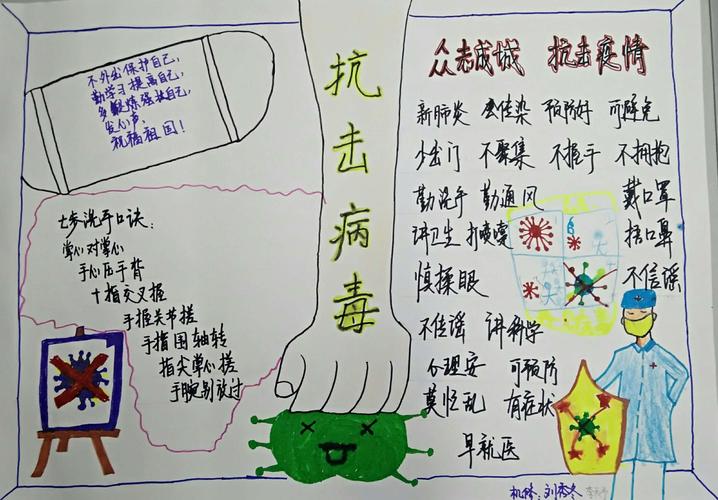 不外出保护自己,
勤学习提高自己,
多锻炼强壮自己,
发心声,
祝福祖国!
七步洗手口诀:
掌心对掌心
手心压手背
十指交叉搓
手握关节搓
手指围轴转
指尖掌心搓
手腕别放过
抗击病毒
众志成城 抗击疫情
新肺炎 会传染 预防好 可避免
少出门 不聚集 不握手 不拥抱
勤洗手 勤通风 戴口罩
讲卫生 打喷嚏 捂口鼻
慎揉眼 不信谣
不传谣 讲科学
心理安 可预防
莫慌乱 有症状
早就医